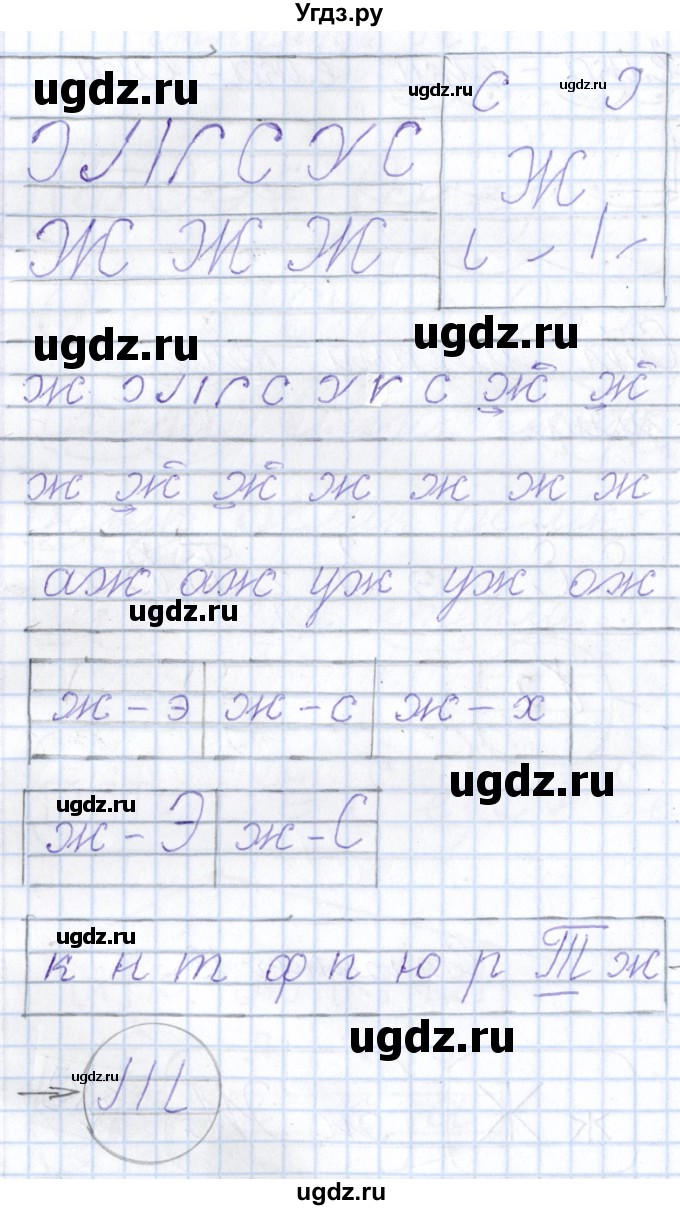 Угдз.ру
ugdz.ru ugdz.ru ugdz.ru
С Э
С Х С
Ж
Ж Ж Ж
ugdz.ru ugdz.ru
ж с х с ж ж
ж ж ж ж ж ж ж
аж аж уж уж ож
ugdz.ru
ж - э ж - с ж - х
ugdz.ru
ugdz.ru
ж - Э ж - С
ugdz.ru
к н т ф п ю р Т ж
ugdz.ru
ugdz.ru
ugdz.ru